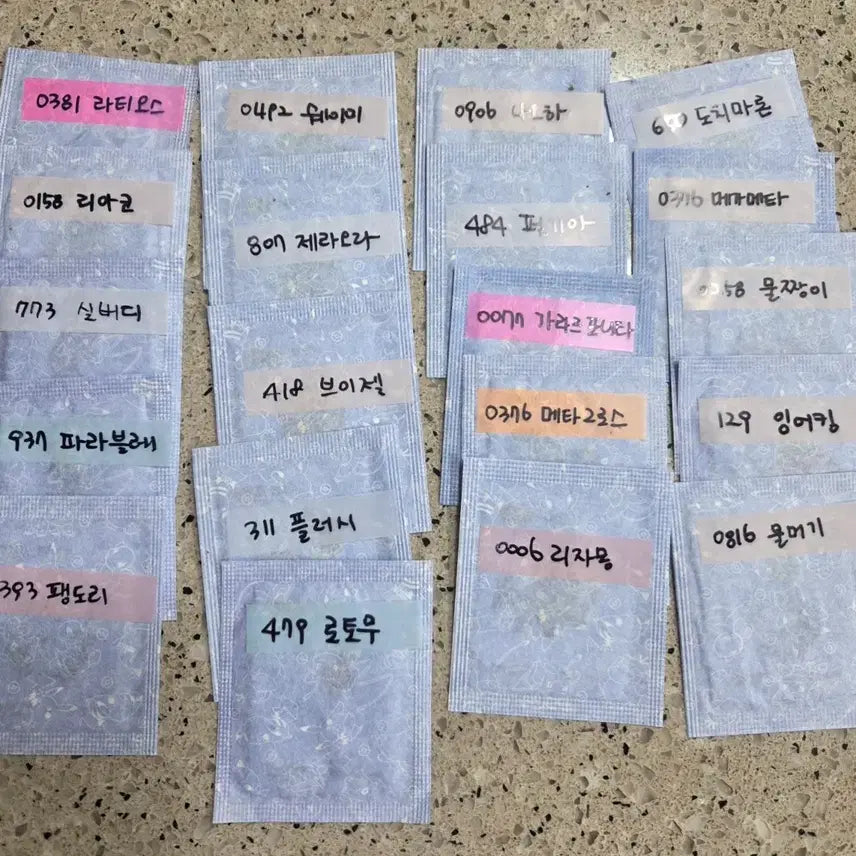 0381 라티오스
0158 리아코
773 실버디
937 파라블레
393 팽도리
0492 쉐이미
807 제라오라
418 브이젤
311 플러시
479 로토우
0906 나오하
484
0077 가라르 포니타
0376 메타그로스
0006 리자몽
도치마론
0376 메가메타
물짱이
129 잉어킹
0816 울머기